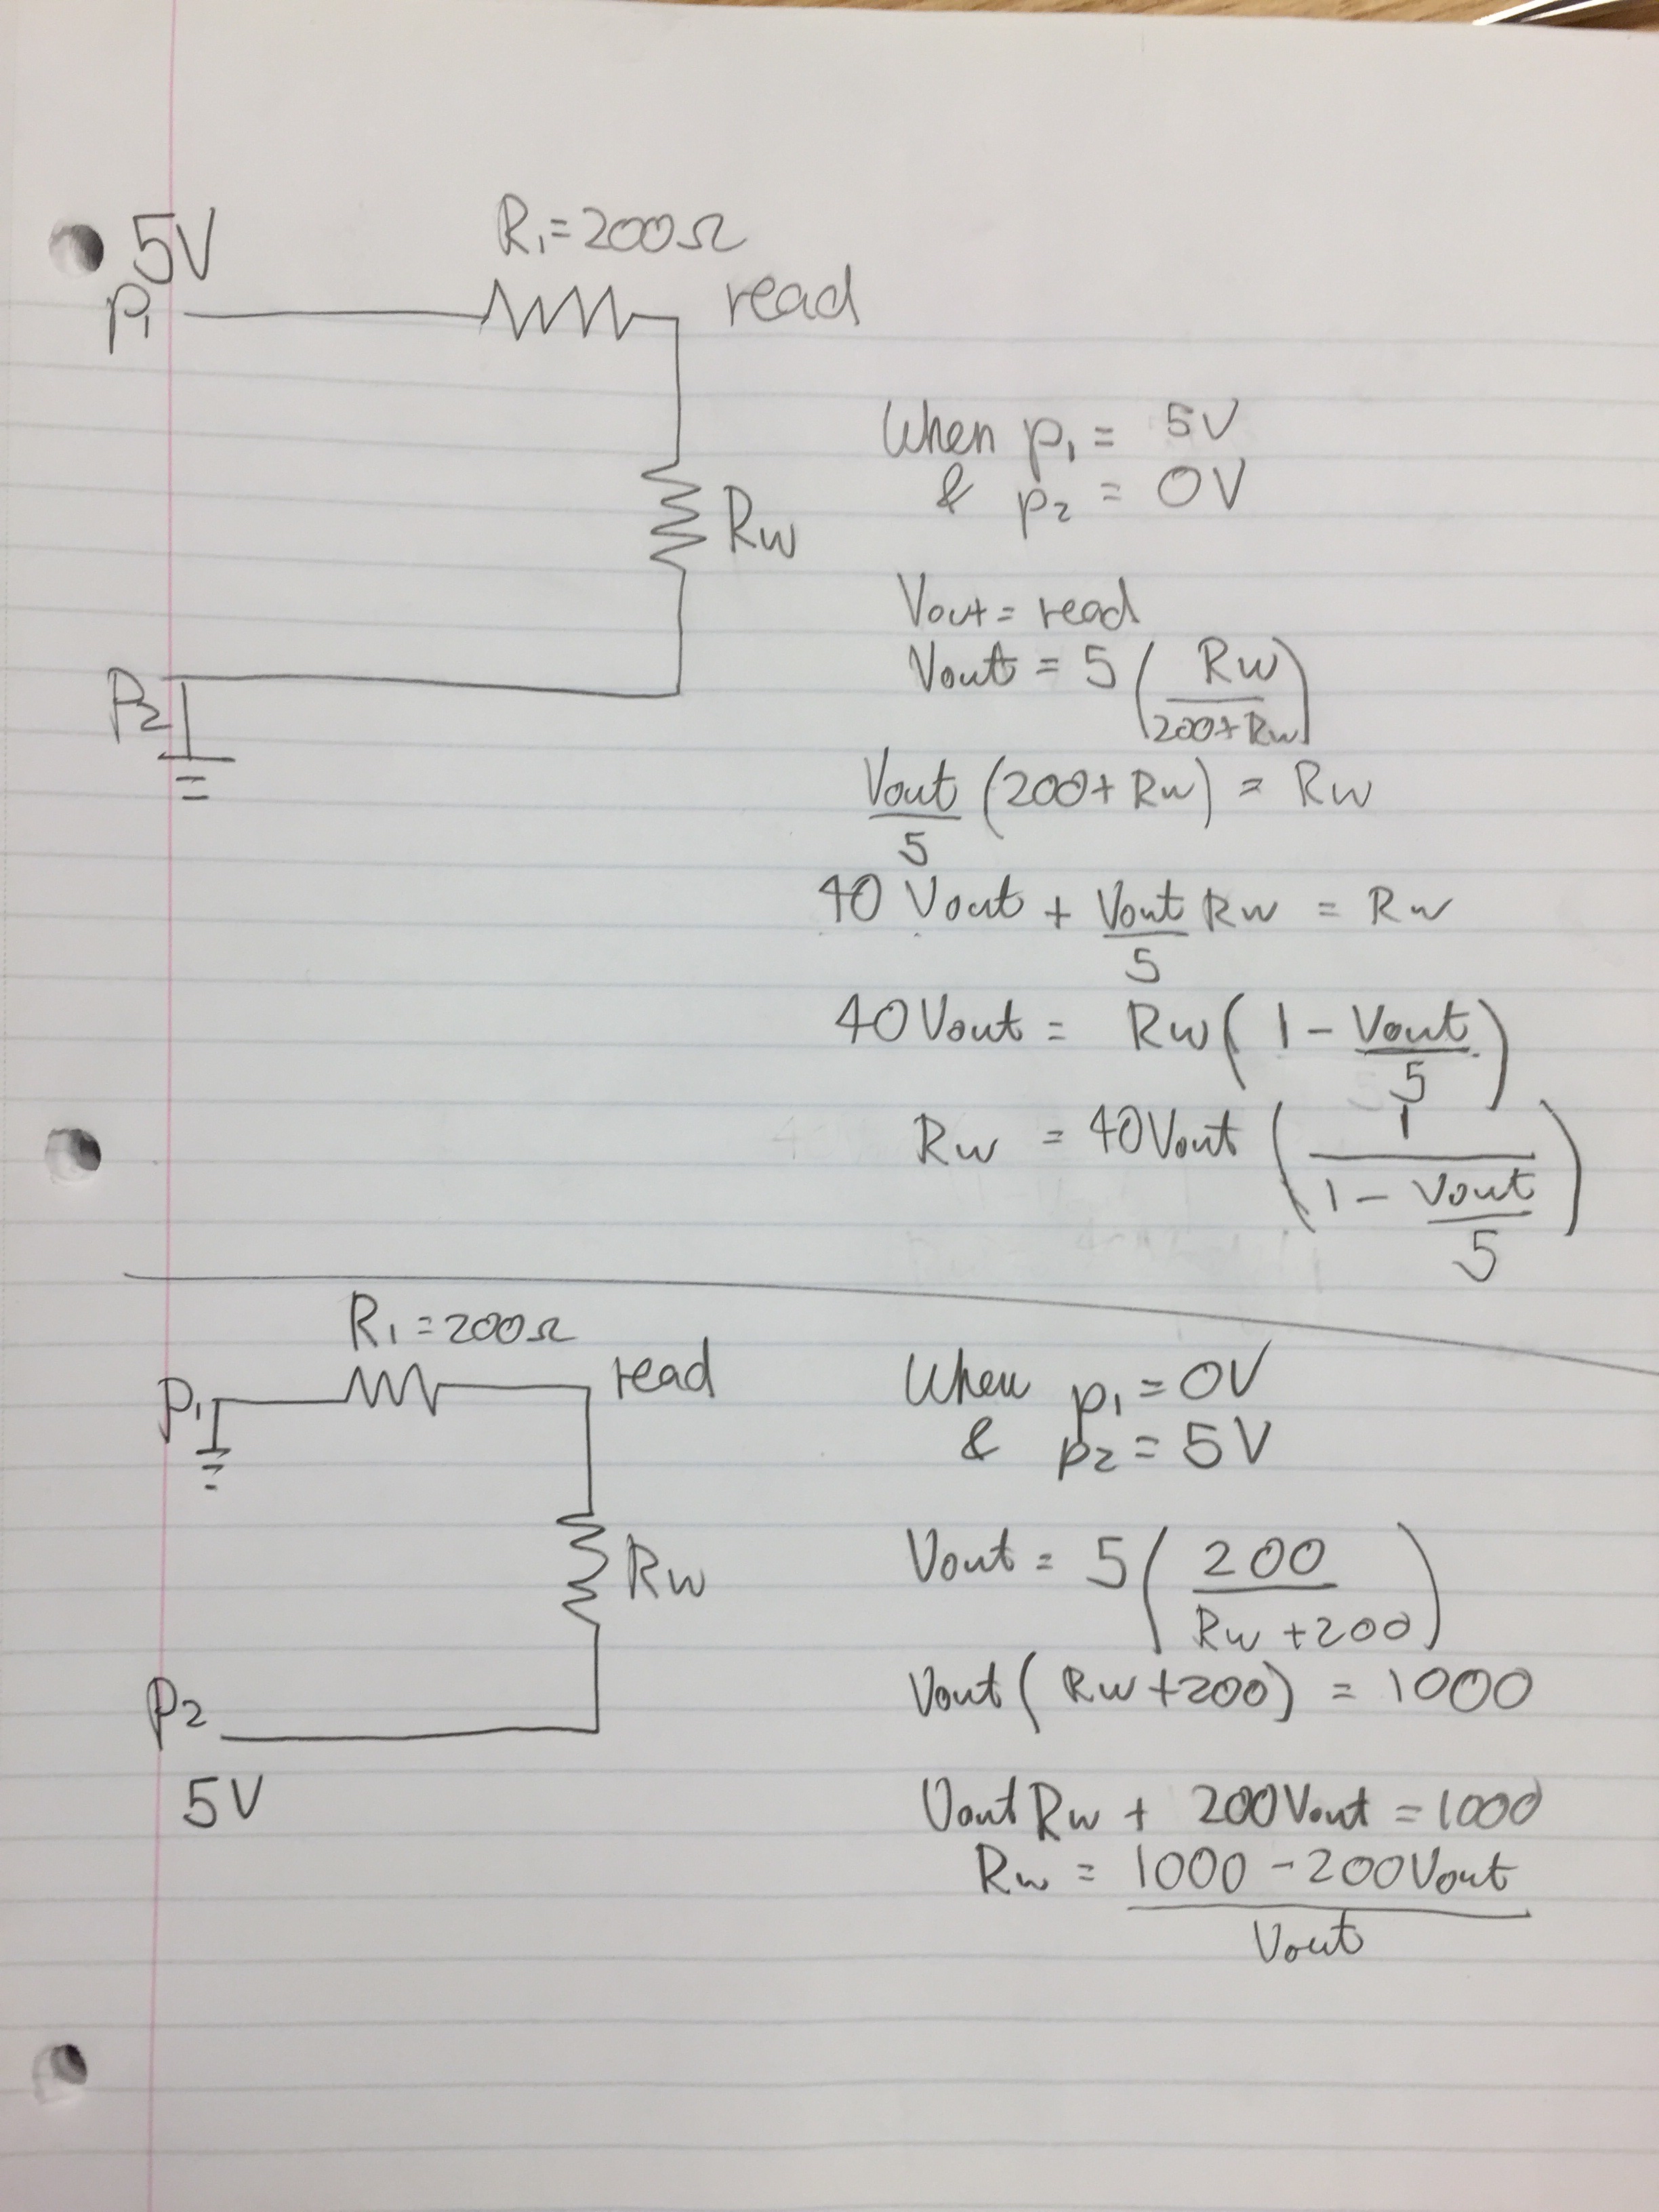 5V
P₁
R₁=200Ω
read
Rw
P₂
When p₁ = 5V
& p₂ = 0V
Vout = read
Vout = 5 (Rw / 200+Rw)
Vout/5 (200+Rw) = Rw
40 Vout + Vout/5 Rw = Rw
40Vout = Rw(1 - Vout/5)
Rw = 40Vout (1 / (1 - Vout/5))
R₁=200Ω
P₁
read
Rw
P₂
5V
When p₁=0V
& p₂=5V
Vout = 5(200 / Rw+200)
Vout(Rw+200) = 1000
VoutRw + 200Vout = 1000
Rw = (1000 - 200Vout) / Vout